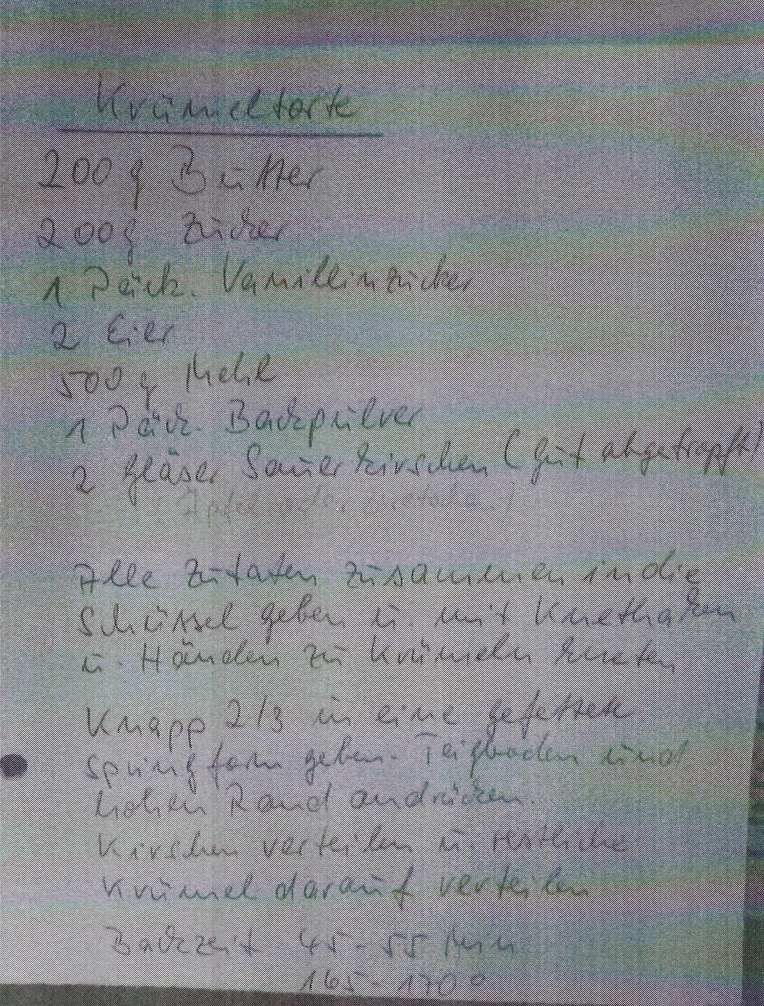 Krümeltorte
200 g Butter
200g Zucker
1 Päck. Vanillinzucker
2 Eier
500 g Mehl
1 Päck. Backpulver
2 Gläser Sauerkirschen (gut abgetropft)
Äpfel oder
Alle Zutaten zusammen in die
Schüssel geben u. mit Knethaken
u. Händen zu Krümeln kneten
Knapp 2/3 in eine gefettete
Springform geben. Teigboden und
hohen Rand andrücken.
Kirschen verteilen u. restliche
Krümel darauf verteilen
Backzeit 45-55 Min
165-170°